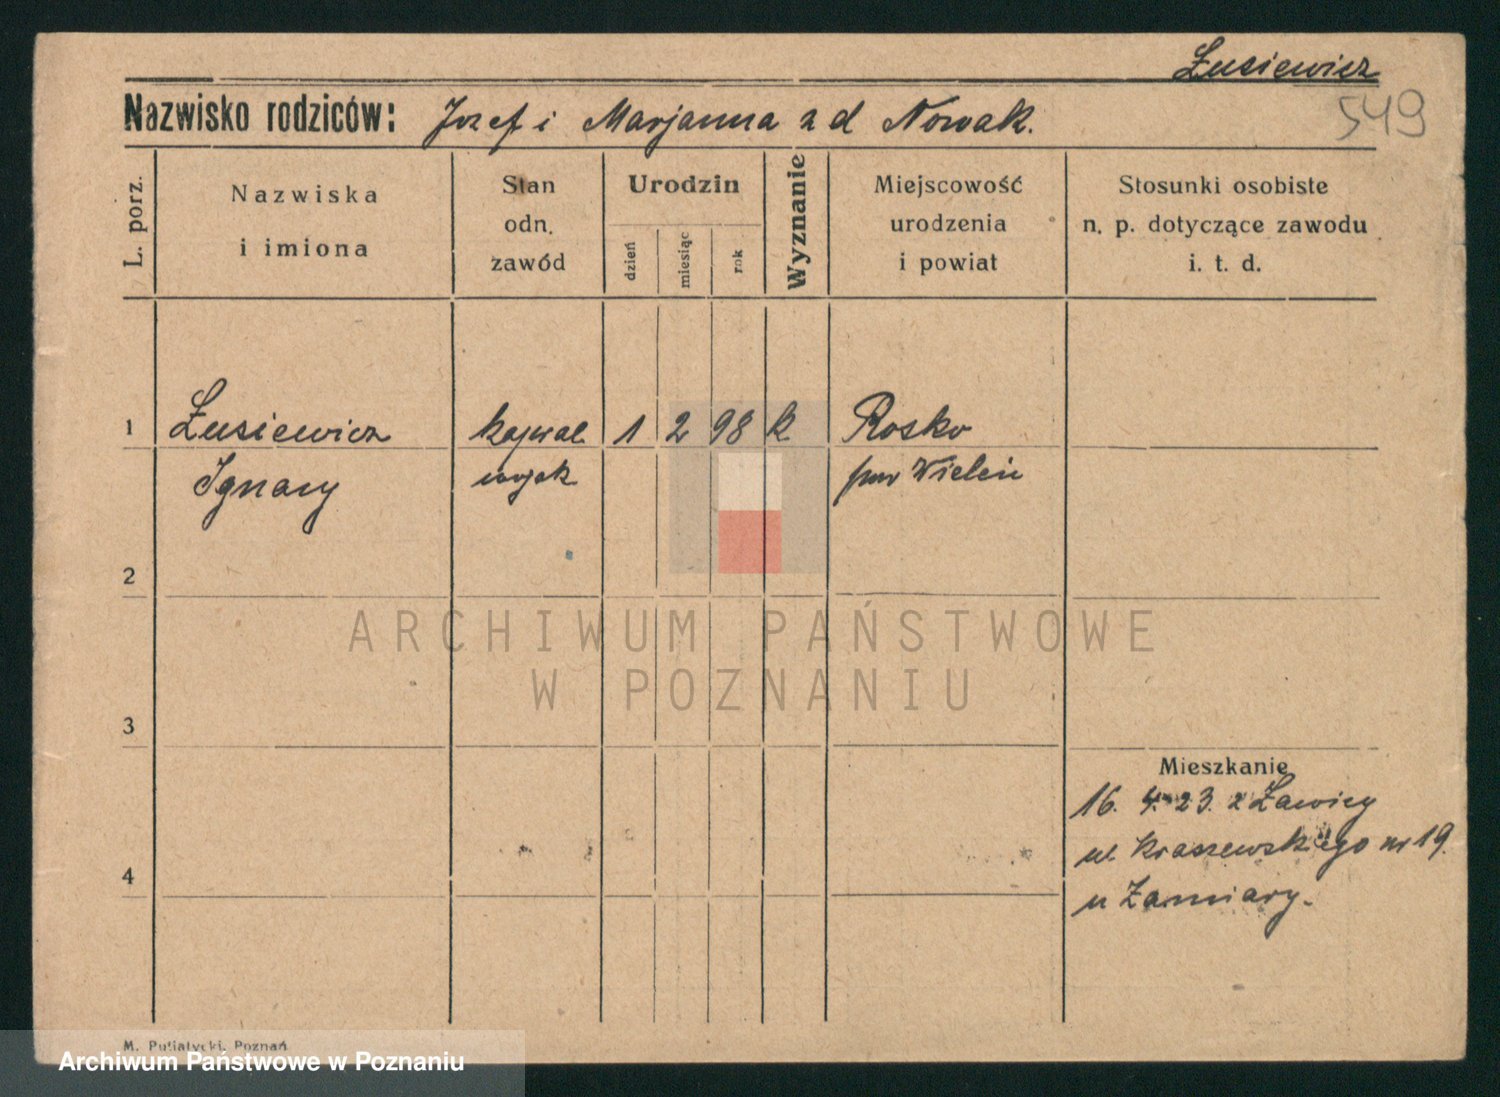 Łusiewicz
549
Nazwisko rodziców: Jozef i Marjanna z d Nowak.
L. porz.
Nazwiska
i imiona
Stan
odn.
zawód
Urodzin
dzień
miesiąc
rok
Wyznanie
Miejscowość
urodzenia
i powiat
Stosunki osobiste
n. p. dotyczące zawodu
i. t. d.
1 Łusiewicz kawal 1 2 98 k Rosko
Ignacy wojsk pow Wieleń
2
ARCHIWUM PAŃSTWOWE
W POZNANIU
3
Mieszkanie
16. 4. 23. z Ławicy
ul Kraszewskiego nr 19.
4
u
M. Putiatycki, Poznań
Archiwum Państwowe w Poznaniu